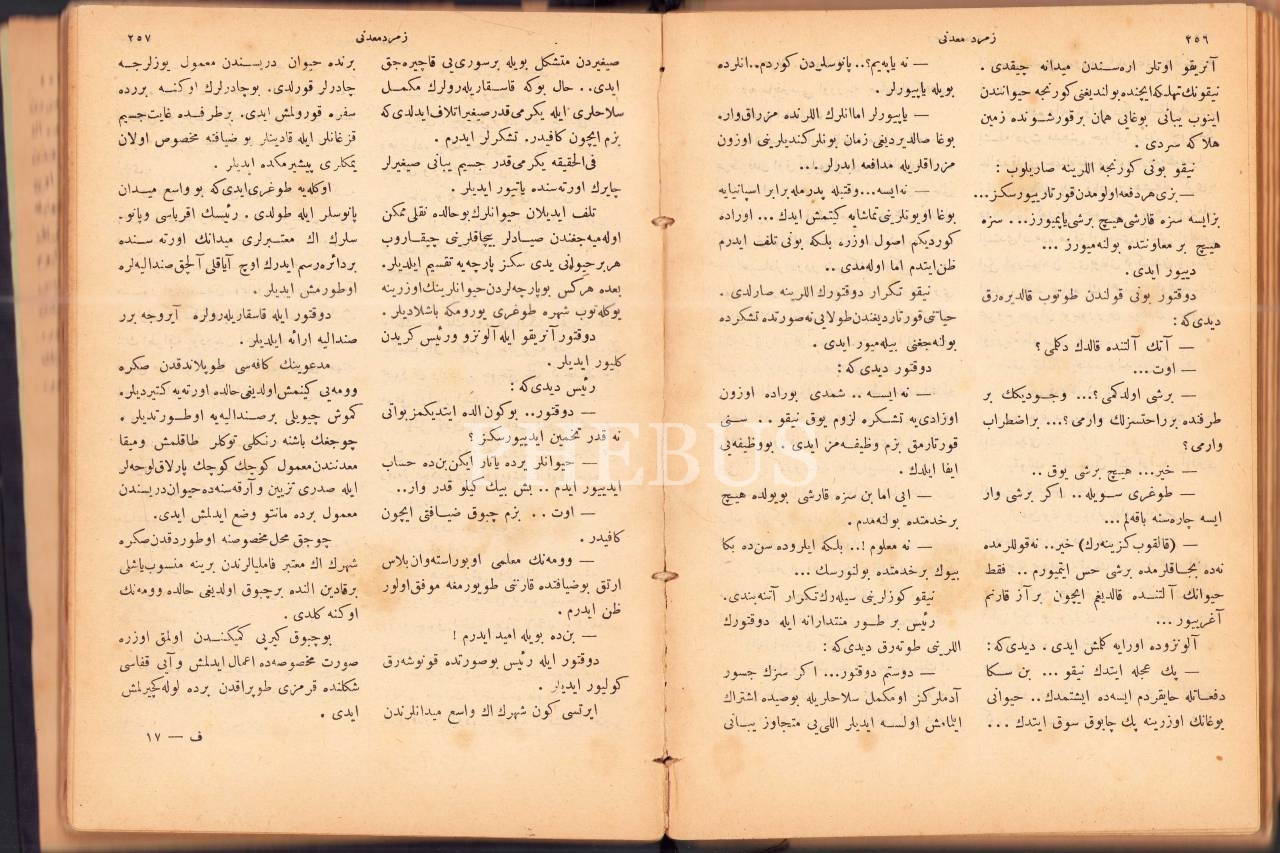 ٢٥٦
زمرد معدنی
آنریقو اوتلر اره‌سندن میدانه چیقدی .
نیقونك تهلكه ایچنده بولندیغنی كورنجه حیوانندن
اینوب یبانی بوغایی همان برقورشونده زمین
هلاكه سردی .
نیقو بونی كورنجه اللرینه صاریلوب :
— بزی هر دفعه اولومدن قورتارییورسكز...
بزایسه سزه قارشی هیچ برشی یاپمیورز... سزه
هیچ بر معاونتده بولنه‌میورز ...
دییور ایدی .
دوقتور بونی قولندن طوتوب قالدیره‌رق
دیدی‌كه :
— آتك آلتنده قالدك دكلمی ؟
— اوت...
— برشی اولدكمی ؟... وجودیكك بر
طرفنده برراحتسزلك وارمی ؟... براضطراب
وارمی ؟
— خیر... هیچ برشی یوق ..
— طوغری سویله.. اكر برشی وار
ایسه چاره‌سنه باقه‌لم...
— (قالقوب كزینه‌رك) خیر.. نه‌قوللرمده
نه‌ده بجاقلرمده برشی حس ایتمیورم .. فقط
حیوانك آلتنده قالدیغم ایچون برآز قارنم
آغرییور ...
آلونزوده اورایه كلمش ایدی . دیدی‌كه :
— پك عجله ایتدك نیقو ... بن سكا
دفعاتله حایقردم ایسه‌ده ایشتمدك .. حیوانی
بوغانك اوزرینه پك چابوق سوق ایتدك ...
— نه یاپه‌یم؟.. پانوسلردن كوردم.. انلرده
بویله یاپیورلر .
— یاپیورلر اما انلرك اللرنده مزراق وار.
بوغا صالدیردیغی زمان بونلر كندیلرینی اوزون
مزراقلریله مدافعه ایدرلر !...
— نه‌ایسه...وقتیله پدرمله برابر اسپانیایه
بوغا اویونلرینی تماشایه كیتمش ایدك ... اوراده
كوردیكم اصول اوزره بلكه بونی تلف ایدرم
ظن ایتدم اما اوله‌مدی ..
نیقو تكرار دوقتورك اللرینه صارلدی .
حیاتنی قورتاردیغندن طولایی نه‌صورتده تشكرده
بولنه‌جغنی بیله‌میور ایدی .
دوقتور دیدی‌كه :
— نه ایسه .. شمدی بوراده اوزون
اوزادی‌یه تشكره لزوم یوق نیقو .. . سنی
قورتارمق بزم وظیفه‌مز ایدی . بووظیفه‌یی
ایفا ایلدك .
— ایی اما بن سزه قارشی بویولده هیچ
برخدمتده بولنه‌مدم .
— نه معلوم !.. بلكه ایلروده سن‌ده بكا
بیوك برخدمتده بولنورسك ...
نیقو كوزلرینی سیله‌رك تكرار آتنه بندی .
رئیس بر طور منتدارانه ایله دوقتورك
اللرینی طوته‌رق دیدی‌كه :
— دوستم دوقتور... اكر سزك جسور
آدملركز اومكمل سلاحلریله بوصیده اشتراك
ایتمامش اولسه ایدیلر اللی‌یی متجاوز یبانی
٢٥٧
زمرد معدنی
صیغیردن متشكل بویله برسوری‌یی قاچیره‌جق
ایدی.. حال بوكه قاسقاریله‌رولرك مكمل
سلاحلری ایله یكرمی قدر صغیر اتلاف ایدلدی‌كه
بزم ایچون كافیدر. تشكرلر ایدرم .
فی‌الحقیقه یكرمی قدر جسیم یبانی صیغیرلر
چایرك اورته‌سنده یاتیور ایدیلر .
تلف ایدیلان حیوانلرك بوحالده نقلی ممكن
اوله‌میه‌جغندن صیادلر بیچاقلرینی چیقاروب
هر برحیوانی یدی سكز پارچه‌یه تقسیم ایلدیلر.
بعده هركس بوپارچه‌لردن حیوانلرینك اوزرینه
یوكله‌توب شهره طوغری یورومكه باشلادیلر .
دوقتور آنریقو ایله آلونزو و رئیس كریدن
كلیور ایدیلر .
رئیس دیدی‌كه :
— دوقتور.. بوكون الده ایتدیكمز بوآتی
نه قدر تخمین ایدییورسكز ؟
— حیوانلر یرده یاتار ایكن بن‌ده حساب
ایدییور ایدم .. بش بیك كیلو قدر وار..
— اوت .. بزم چبوق ضیافتی ایچون
كافیدر .
— وومه‌نك معلمی اوبوراستوان بلاس
ارتق بوضیافتده قارننی طویورمغه موفق اولور
ظن ایدرم .
— بن‌ده بویله امید ایدرم !
دوقتور ایله رئیس بوصورتده قونوشه‌رق
كولیور ایدیلر .
ایرتسی كون شهرك اك واسع میدانلرندن
برنده حیوان دریسندن معمول یوزلرجه
چادرلر قورلدی. بوچادرلرك اوكنه یررده
سفره قورولمش ایدی. برطرفده غایت جسیم
قزغانلر ایله قادینلر بو ضیافته مخصوص اولان
یمكلری پیشیرمكده ایدیلر .
اوكله‌یه طوغری ایدی‌كه بو واسع میدان
پانوسلر ایله طولدی . رئیسك اقرباسی وپانو-
سلرك اك معتبرلری میدانك اورته سنده
بردائره رسم ایدرك اوچ آیاقلی آلچق صندالیه‌لره
اوطورمش ایدیلر .
دوقتور ایله قاسقاریله‌رولره آیروجه برر
صندالیه ارائه ایلدیلر .
مدعوینك كافه‌سی طوپلاندقدن صكره
وومه‌یی كینمش اولدیغی حالده اورته‌یه كتیردیلر.
كوش چیویلی برصندالیه‌یه اوطورتدیلر .
چوجغك باشنه رنكلی توكلر طاقلمش ومیقا
معدنندن معمول كوچك كوچك پارلاق لوحه‌لر
ایله صدری تزیین و آرقه‌سنه‌ده حیوان دریسندن
معمول برده مانتو وضع ایدلمش ایدی.
چوجق محل مخصوصنه اوطوردقدن صكره
شهرك اك معتبر فامیلیالرندن برینه منسوب یاشلی
برقادین النده برچبوق اولدیغی حالده وومه‌نك
اوكنه كلدی .
بوچبوق كیرپی كمیكندن اولمق اوزره
صورت مخصوصه‌ده اعمال ایدلمش و آیی قفاسی
شكلنده قرمزی طوپراقدن برده لوله كچیرلمش
ایدی .
ف — ١٧
PHEBUS